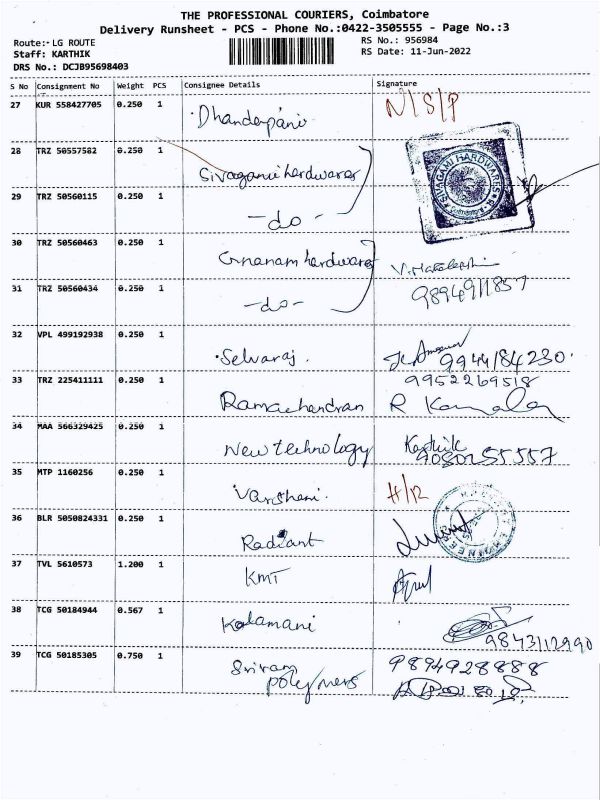 THE PROFESSIONAL COURIERS, Coimbatore
Delivery Runsheet - PCS - Phone No.:0422-3505555 - Page No.:3
Route:- LG ROUTE
RS No.: 956984
Staff: KARTHIK
RS Date: 11-Jun-2022
DRS No.: DCJB95698403
S No Consignment No Weight PCS Consignee Details Signature
27 KUR 558427705 0.250 1 Dhandapani N/S/P
28 TRZ 50557582 0.250 1 Sivagami hardwares
SIVAGAMI HARDWARES
29 TRZ 50560115 0.250 1 -do-
30 TRZ 50560463 0.250 1 Gnanam hardwares
31 TRZ 50560434 0.250 1 -do- 9894911857
32 VPL 499192938 0.250 1 Selvaraj. 9944184230
33 TRZ 225411111 0.250 1 Ramachandran 9952269518
R Kamala
34 MAA 566329425 0.250 1 New technology Karthik
9080255557
35 MTP 1160256 0.250 1 Varshani. H/12
36 BLR 5050824331 0.250 1 Radiant
37 TVL 5610573 1.200 1 KMT
38 TCG 50184944 0.567 1 Kalamani
9843112990
39 TCG 50185305 0.750 1 Sriram 9894928888
polymers